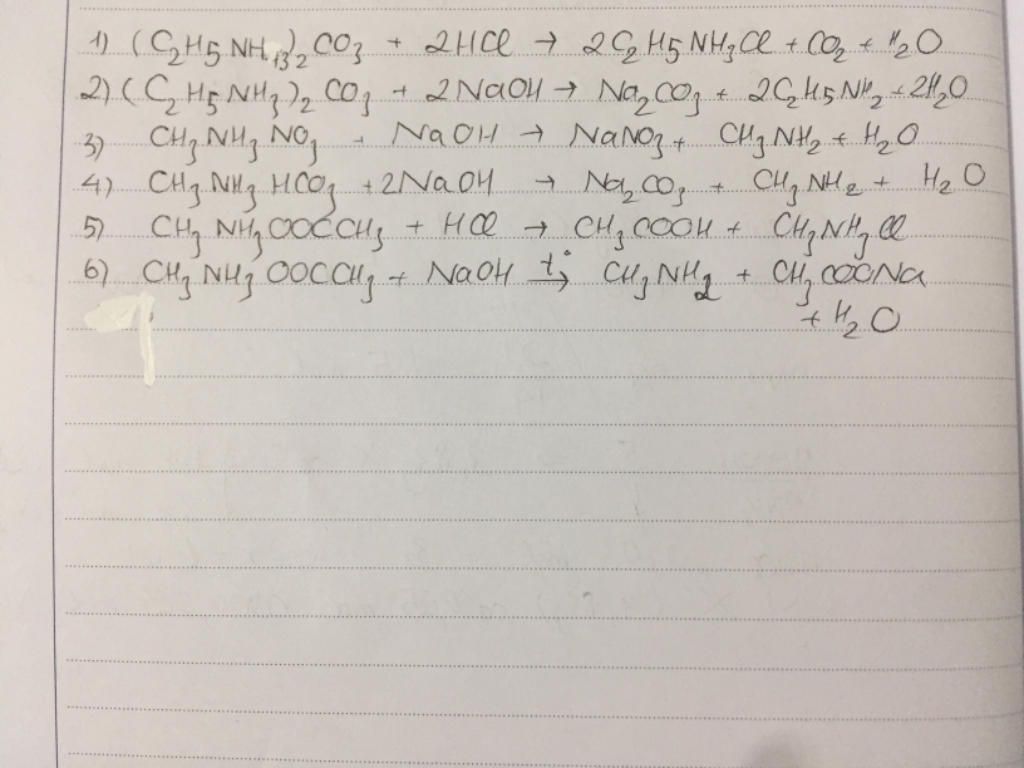 1) (C₂H₅NH₃)₂CO₃ + 2HCl → 2C₂H₅NH₃Cl + CO₂ + H₂O
2) (C₂H₅NH₃)₂CO₃ + 2NaOH → Na₂CO₃ + 2C₂H₅NH₂ + 2H₂O
3) CH₃NH₃NO₃ + NaOH → NaNO₃ + CH₃NH₂ + H₂O
4) CH₃NH₃HCO₃ + 2NaOH → Na₂CO₃ + CH₃NH₂ + H₂O
5) CH₃NH₃OOCCH₃ + HCl → CH₃COOH + CH₃NH₃Cl
6) CH₃NH₃OOCCH₃ + NaOH t°→ CH₃NH₂ + CH₃COONa
+ H₂O